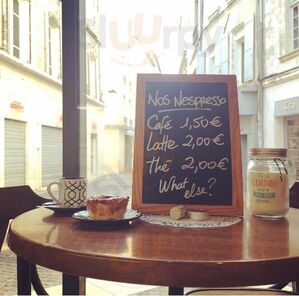 Nos Nespresso
Café 1,50€
Latte 2,00€
Thé 2,00€
What
else?